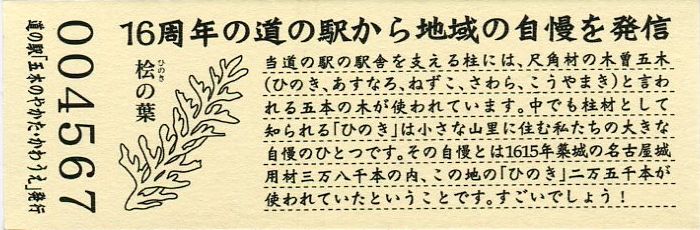 16周年の道の駅から地域の自慢を発信
当道の駅の駅舎を支える柱には、尺角材の木曽五木
(ひのき、あすなろ、ねずこ、さわら、こうやまき)と言わ
れる五本の木が使われています。中でも柱材として
知られる「ひのき」は小さな山里に住む私たちの大きな
自慢のひとつです。その自慢とは1615年築城の名古屋城
用材三万八千本の内、この地の「ひのき」二万五千本が
使われていたということです。すごいでしょう!
ひのき
桧の葉
004567
道の駅「五木のやかた・かわうえ」発行